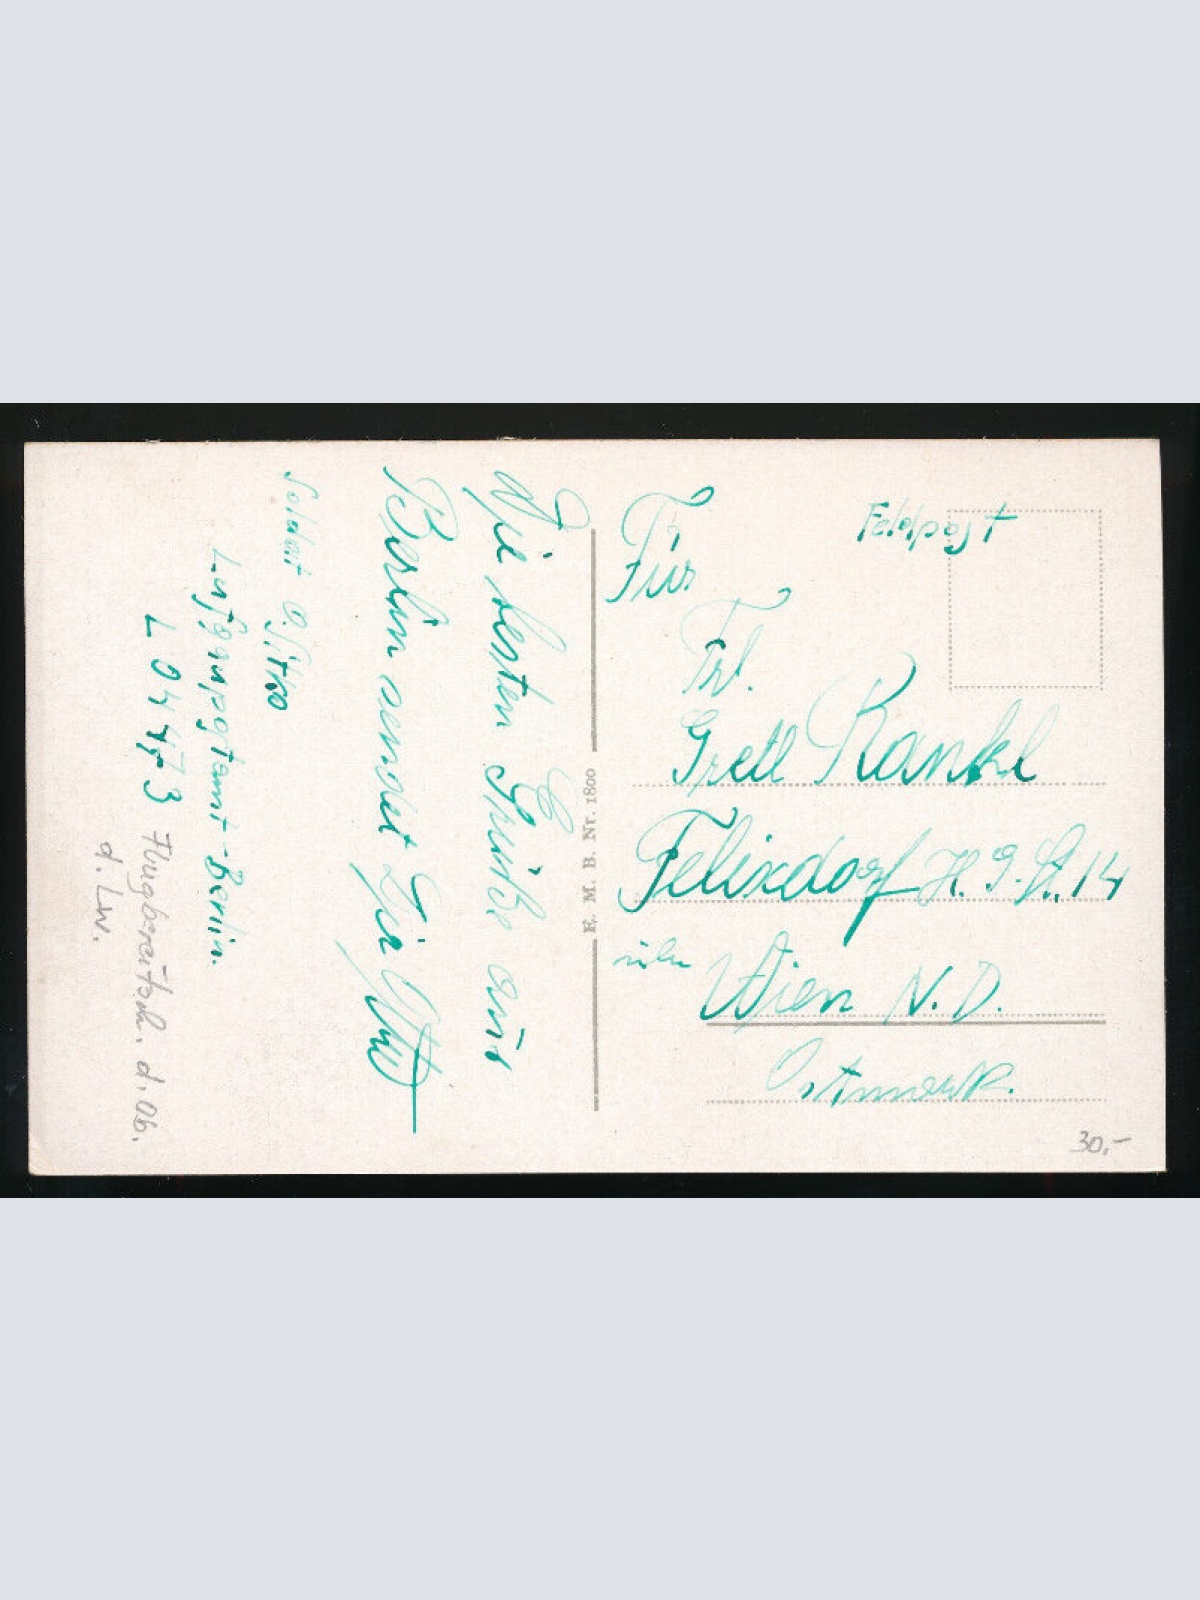 Feldpost
Für
Frl.
Gretl Rankl
Felixdorf H. G. St. 14
über Wien N. D.
Ostmark.
30,-
E. M. B. Nr. 1800
Die besten Grüße aus
Berlin sendet Dir Otto
Soldat O. Sitko
Luftgaupostamt-Berlin.
L 04473 Flugbereitsch. d. Ob.
d. Lw.